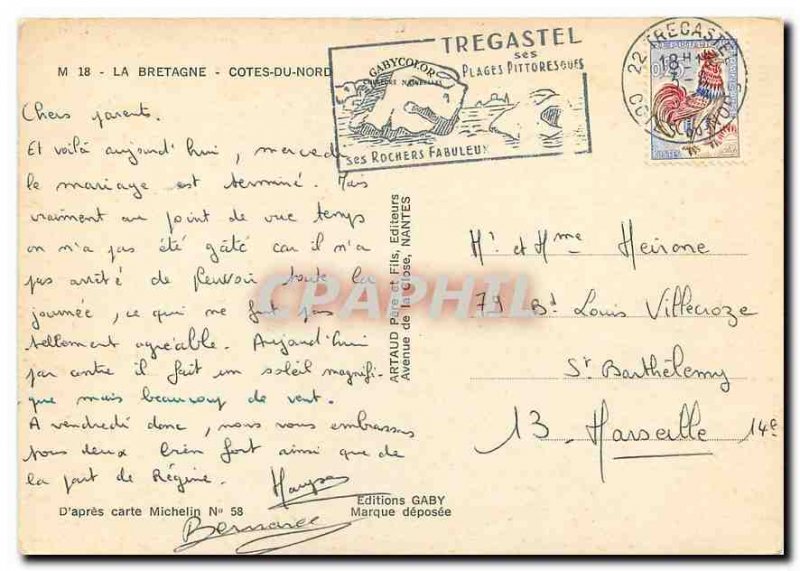 M 18 - LA BRETAGNE - COTES-DU-NORD
Chers parents.
Et voilà aujourd'hui, mercredi
le mariage est terminé. Mais
vraiment au point de vue temps
on n'a pas été gâté car il n'a
pas arrêté de pleuvoir toute la
journée, ce qui ne fut pas
tellement agréable. Aujourd'hui
par contre il fait un soleil magnifi-
que mais beaucoup de vent.
A vendredi donc, nous vous embrassons
tous deux bien fort ainsi que de
la part de Régine.
Bernard
D'après carte Michelin No 58
Editions GABY
Marque déposée
ARTAUD Père et Fils, Editeurs
Avenue de la Close, NANTES
GABYCOLOR
COULEURS NATURELLES
TREGASTEL
ses
PLAGES PITTORESQUES
ses ROCHERS FABULEUX
22 TREGASTEL
18 H
COTES DU NORD
Mr et Mme Heirone
79 Bd Louis Villecroze
St Barthélemy
13 - Marseille 14e
CPAPHIL